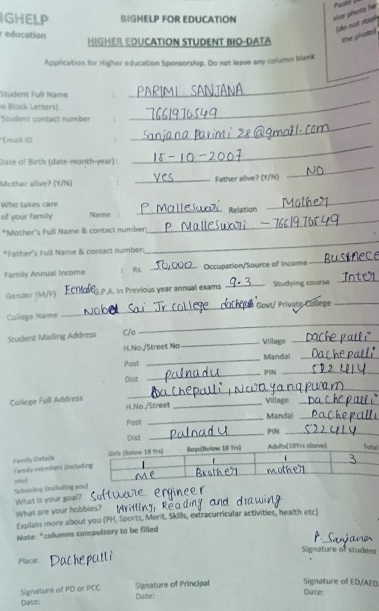 IGHELP
BIGHELP FOR EDUCATION
r education
HIGHER EDUCATION STUDENT BIO-DATA
Application for Higher education Sponsorship. Do not leave any column blank
size photo he
(do not staple
the photo)
Student Full Name : PARIMI SANJANA
in Block Letters)
Student contact number : 7661970549
Email ID : Sanjana Parimi 28@gmail.com
Date of Birth (date-month-year): 15-10-2007
Mother alive? (Y/N) : Yes Father alive? (Y/N) NO
Who takes care
of your family Name : P Malleswari Relation Mother
*Mother's Full Name & contact number: P Malleswari - 7661970549
*Father's Full Name & contact number:
Family Annual Income : Rs. 50,000 Occupation/Source of Income Businece
Gender (M/F) Female G.P.A. in Previous year annual exams 9.3 Studying course Inter
College Name Nobel Sai Jr college dachepalli Govt/ Private College
Student Mailing Address C/o
H.No./Street No Village Dachepalli
Post Mandal Dachepalli
Dist palnadu PIN 522414
College Full Address Dachepalli, Narayanapuram
H.No /Street Village Dachepalli
Post Mandal Dachepalli
Dist Palnadu PIN 522414
Family Details Girls (Below 18 Yrs) Boys(Below 18 Yrs) Adults(18Yrs above) Total
Family members (including you) 1 1 1 3
Schooling (including you) Me Brother mother
What is your goal? Software engineer
What are your hobbies? Writting, Reading and drawing
Explain more about you (PH, Sports, Merit, Skills, extracurricular activities, health etc)
Note: *columns compulsory to be filled
P. Sanjana
Signature of student
Place: Dachepalli
Signature of PD or PCC Signature of Principal Signature of ED/AED
Date: Date: Date: